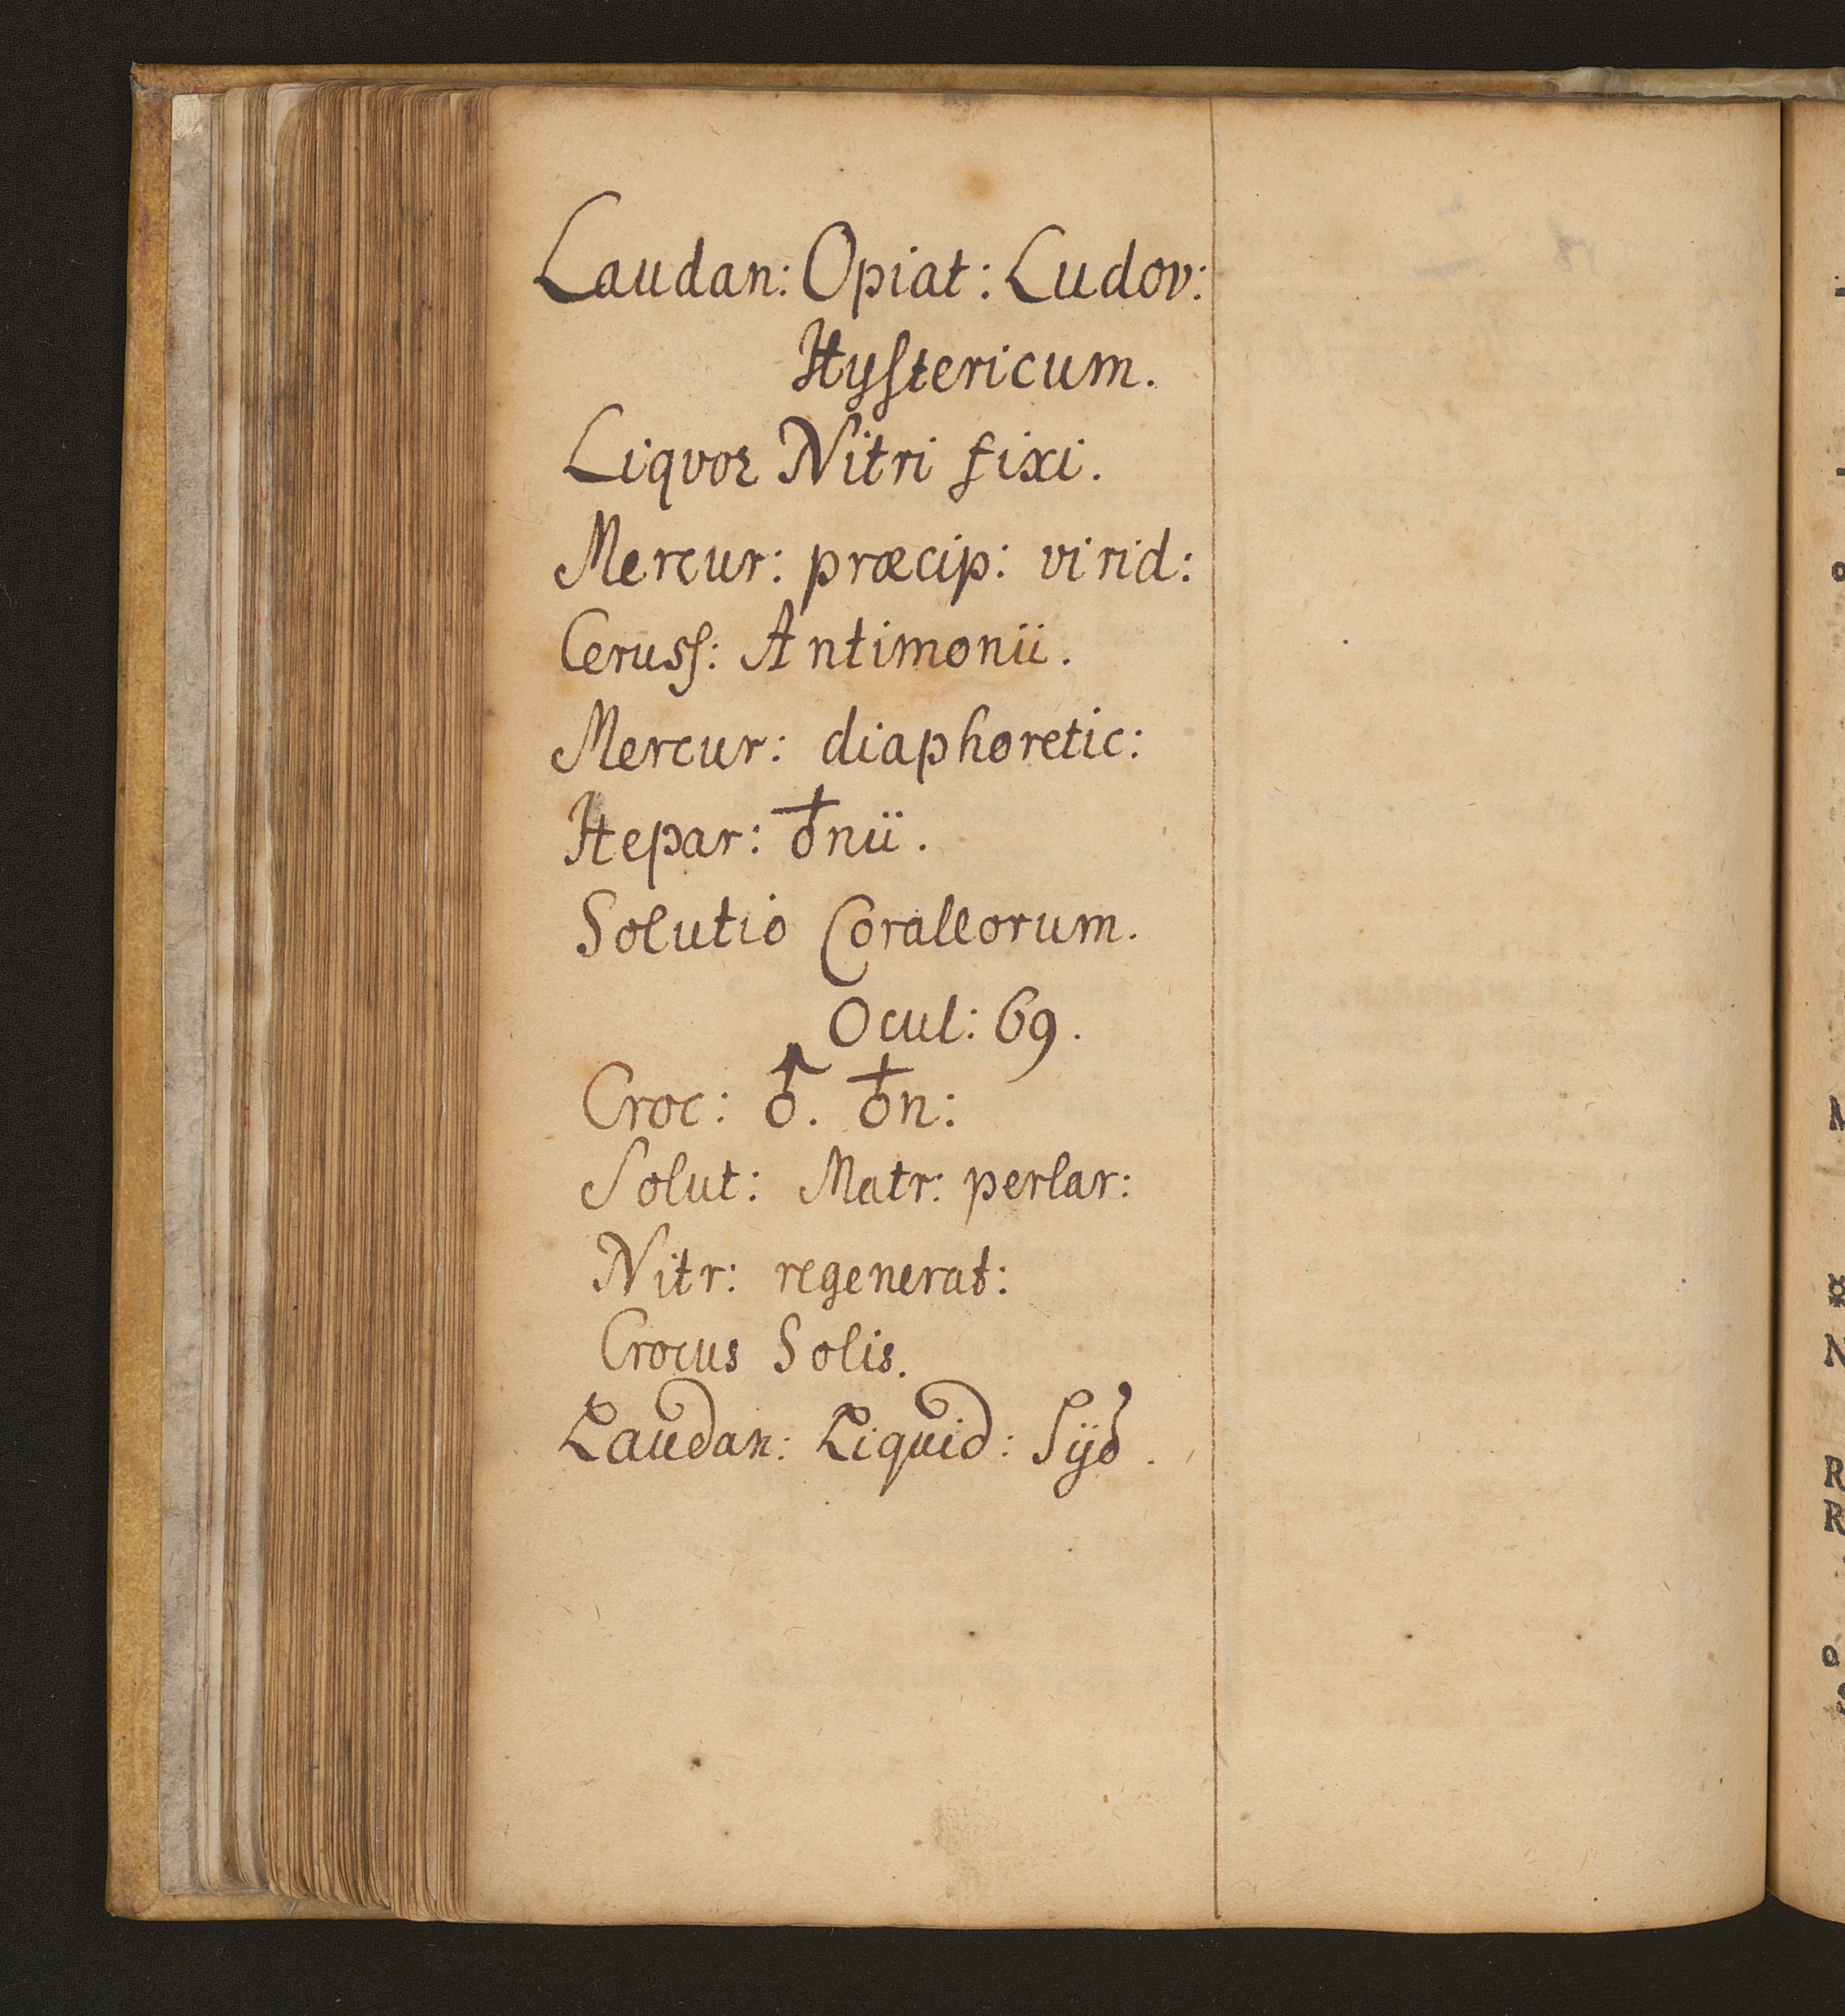 Laudan: Opiat: Ludov:
Hyſtericum.
Liqvor Nitri fixi.
Mercur: præcip: virid:
Cerusſ: Antimonii.
Mercur: diaphoretic:
Hepar: ♁nii.
Solutio Corallorum.
Ocul: 69.
Croc: ♂. ♁n:
Solut: Matr: perlar:
Nitr: regenerat:
Crocus Solis.
Laudan: Liquid: Sÿd.